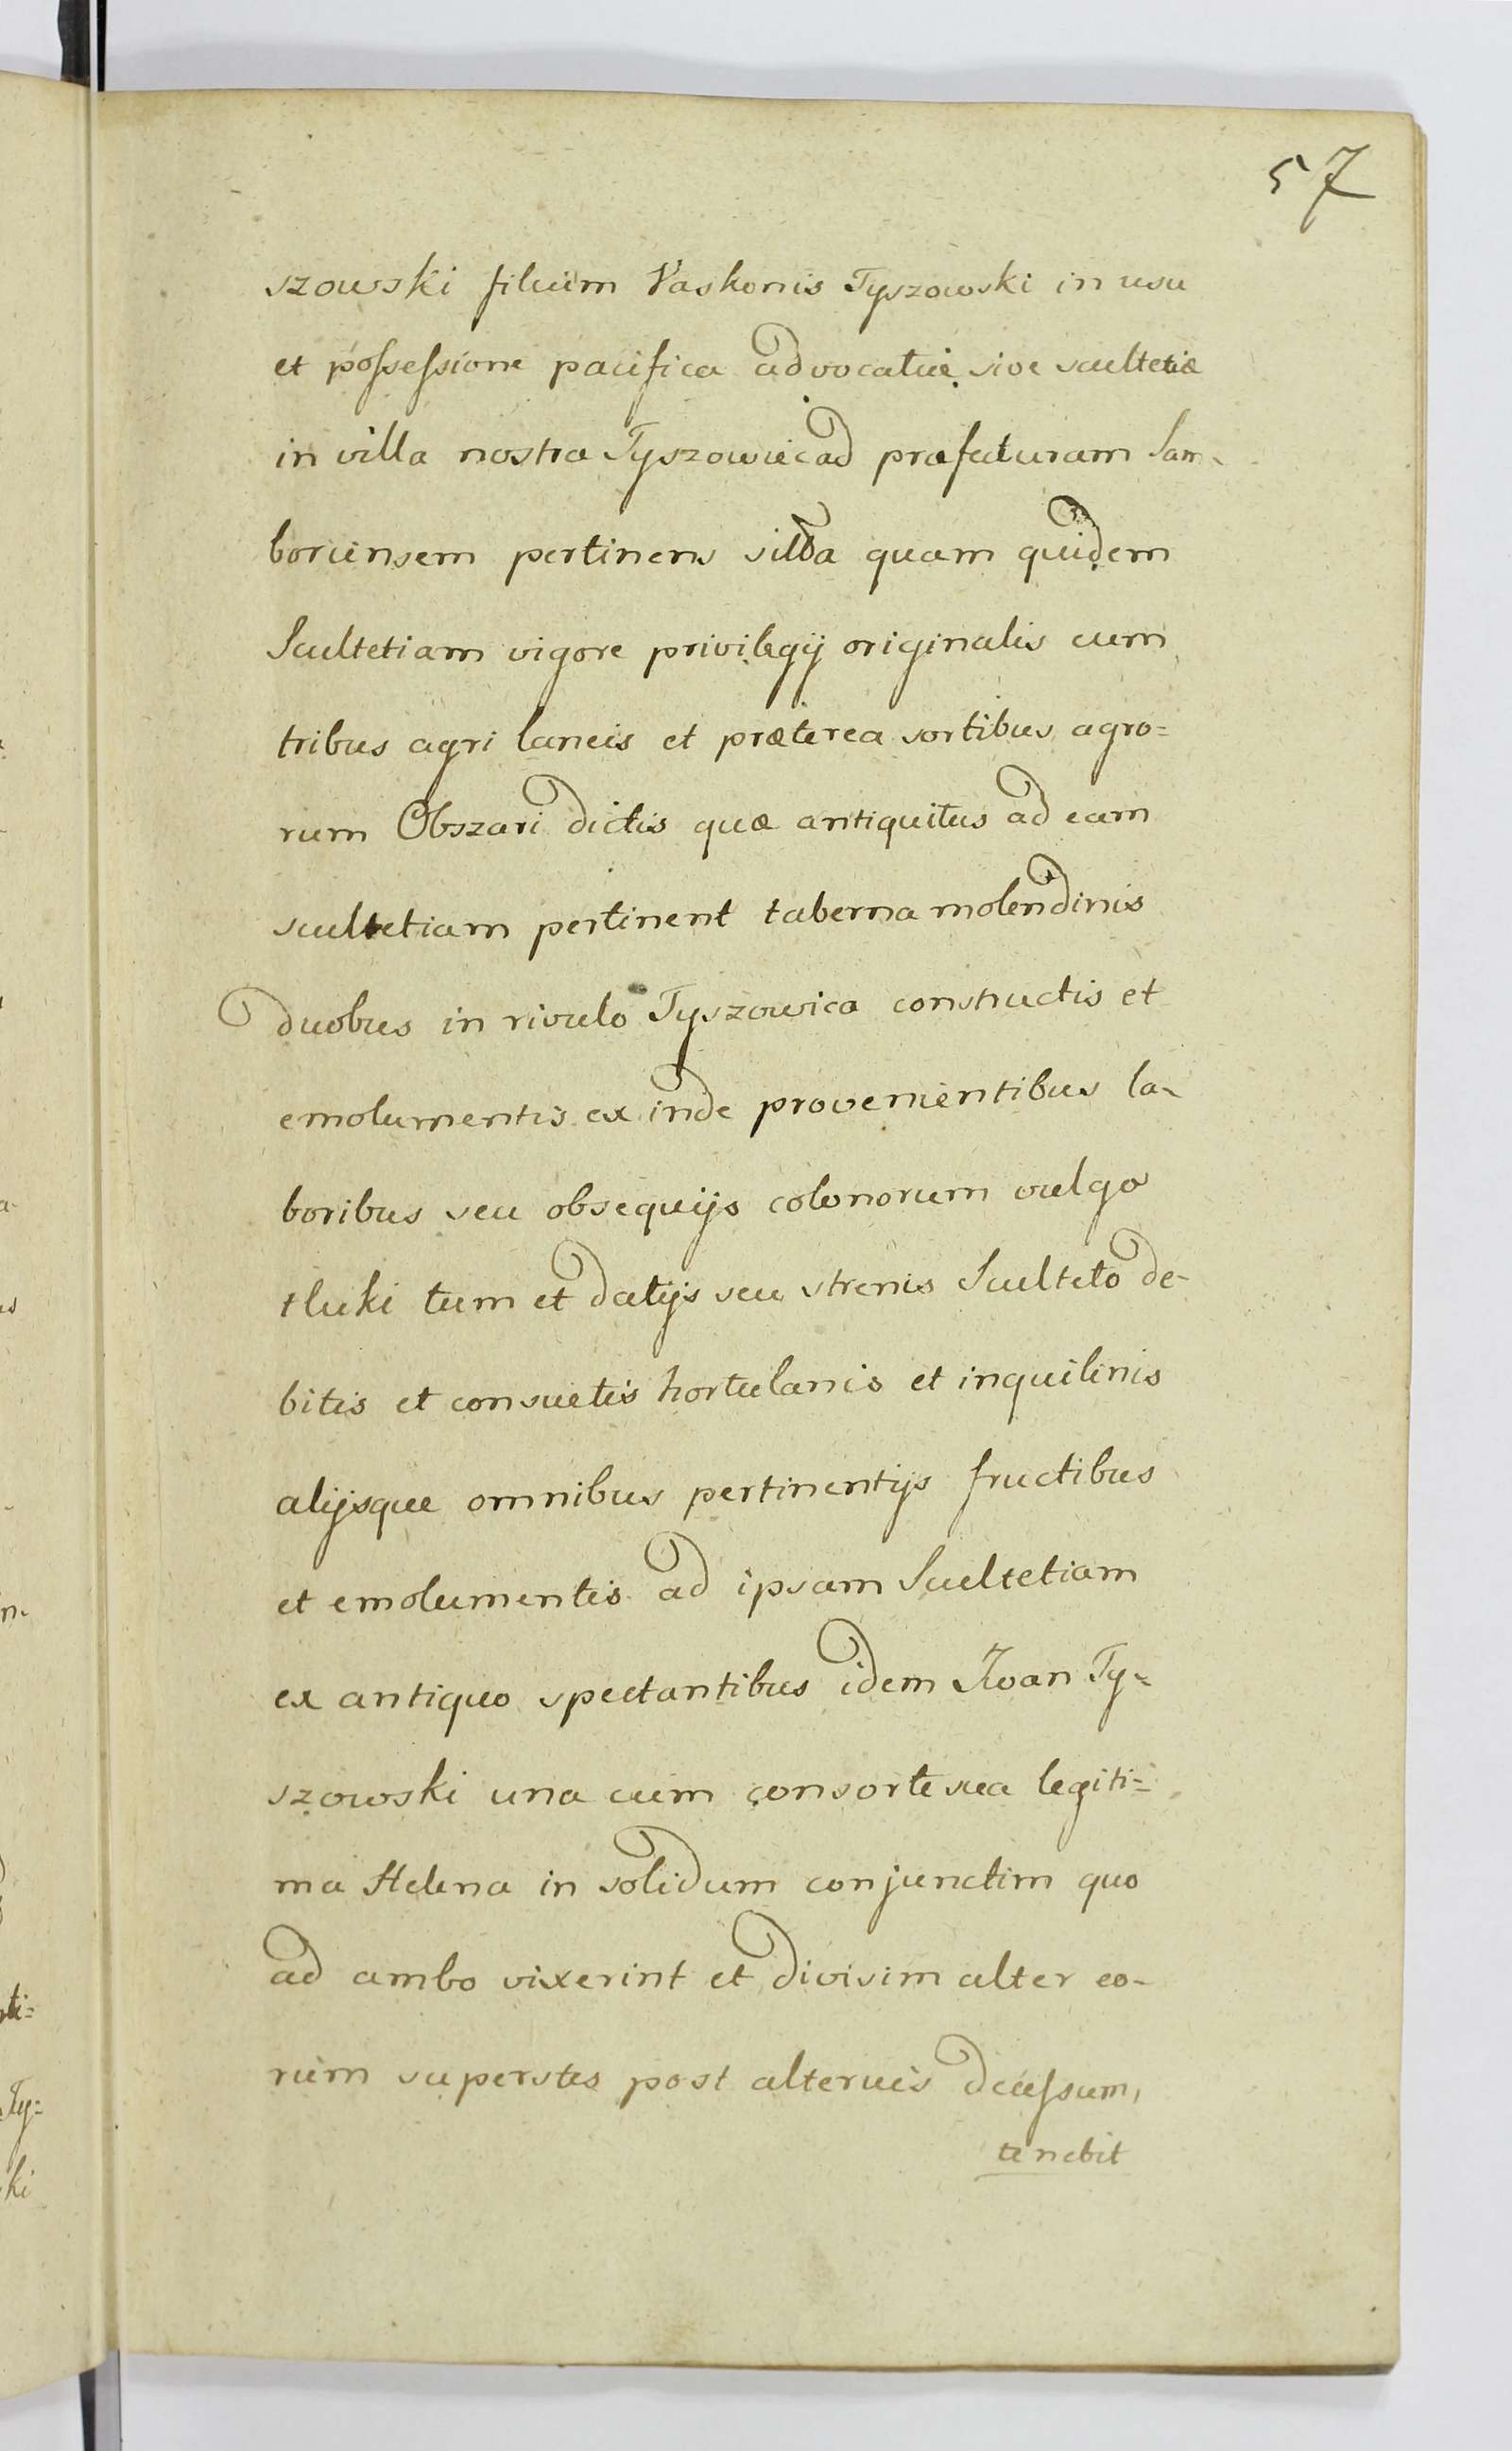 57
szowski filium Vaskonis Tyszowski in usu
et possessione pacifica advocatiæ sive scultetiæ
in villa nostra Tyszowiec ad præfaturam Sam-
boriensem pertinens silba quam quidem
Scultetiam vigore privilegij originalis cum
tribus agri laneis et præterea sortibus agro=
rum Obszari dictis quæ antiquitus ad eam
scultetiam pertinent taberna molendinis
duobus in rivulo Tyszowica constructis et
emolumentis ex inde provenientibus la-
boribus seu obsequijs colonorum vulgo
tluki tum et datijs seu strenis Sculteto de-
bitis et consuetis hortulanis et inquilinis
alijsque omnibus pertinentijs fructibus
et emolumentis ad ipsam Scultetiam
ex antiquo spectantibus idem Iwan Ty=
szowski una cum consorte sua legiti=
ma Helena in solidum conjunctim quo
ad ambo vixerint et divisim alter eo-
rum superstes post alterius decessum,
tenebit